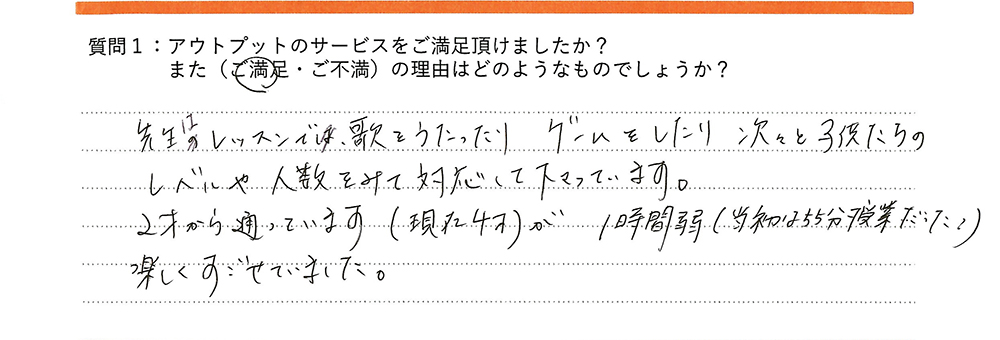 質問1：アウトプットのサービスをご満足頂けましたか？
また（ご満足・ご不満）の理由はどのようなものでしょうか？
先生はレッスンでは、歌をうたったり ゲームをしたり 次々と子供たちの
レベルや 人数をみて対応して下さっています。
2才から通っています（現在4才）が 1時間弱（当初は55分授業だった?）
楽しくすごせていました。